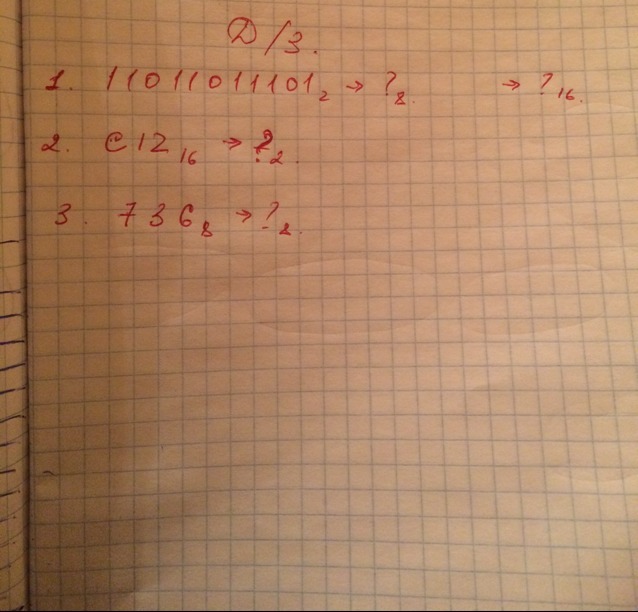 Д/З.
1. 11011011101₂ → ?₈. → ?₁₆.
2. C12₁₆ → ?₂.
3. 736₈ → ?₂.